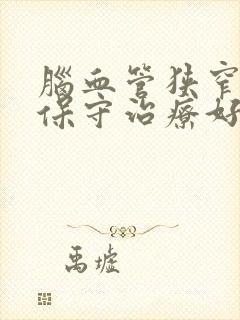 腦血管狹窄
保守治療好
禹墟